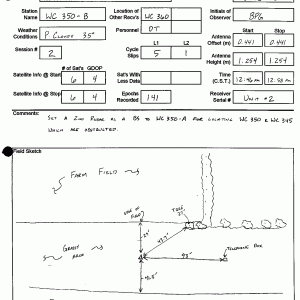 Start Stop Start Stop
Station Name WC 350-B Location of Other Recv's WC 360 Initials of Observer BPG
Weather Conditions P Cloudy 35° Personnel DT Antenna Offset (m) 0.441 0.441
L1 L2 Antenna Height (m) 1.254 1.254
Session # 2 Cycle Slips 5 1
# of Sat's GDOP Time (C.S.T.)
Satellite Info @ Start 6 4 Sat's With Less Data
Satellite Info @ Stop 6 4 Epochs Recorded 141 Receiver Serial # Unit #2
Comments:
Set a 2nd Rebar as a BS to WC 350-A for locating WC 350 & WC 345
which are obstructed.
Field Sketch
Farm Field
Grassy Area
Telephone Box